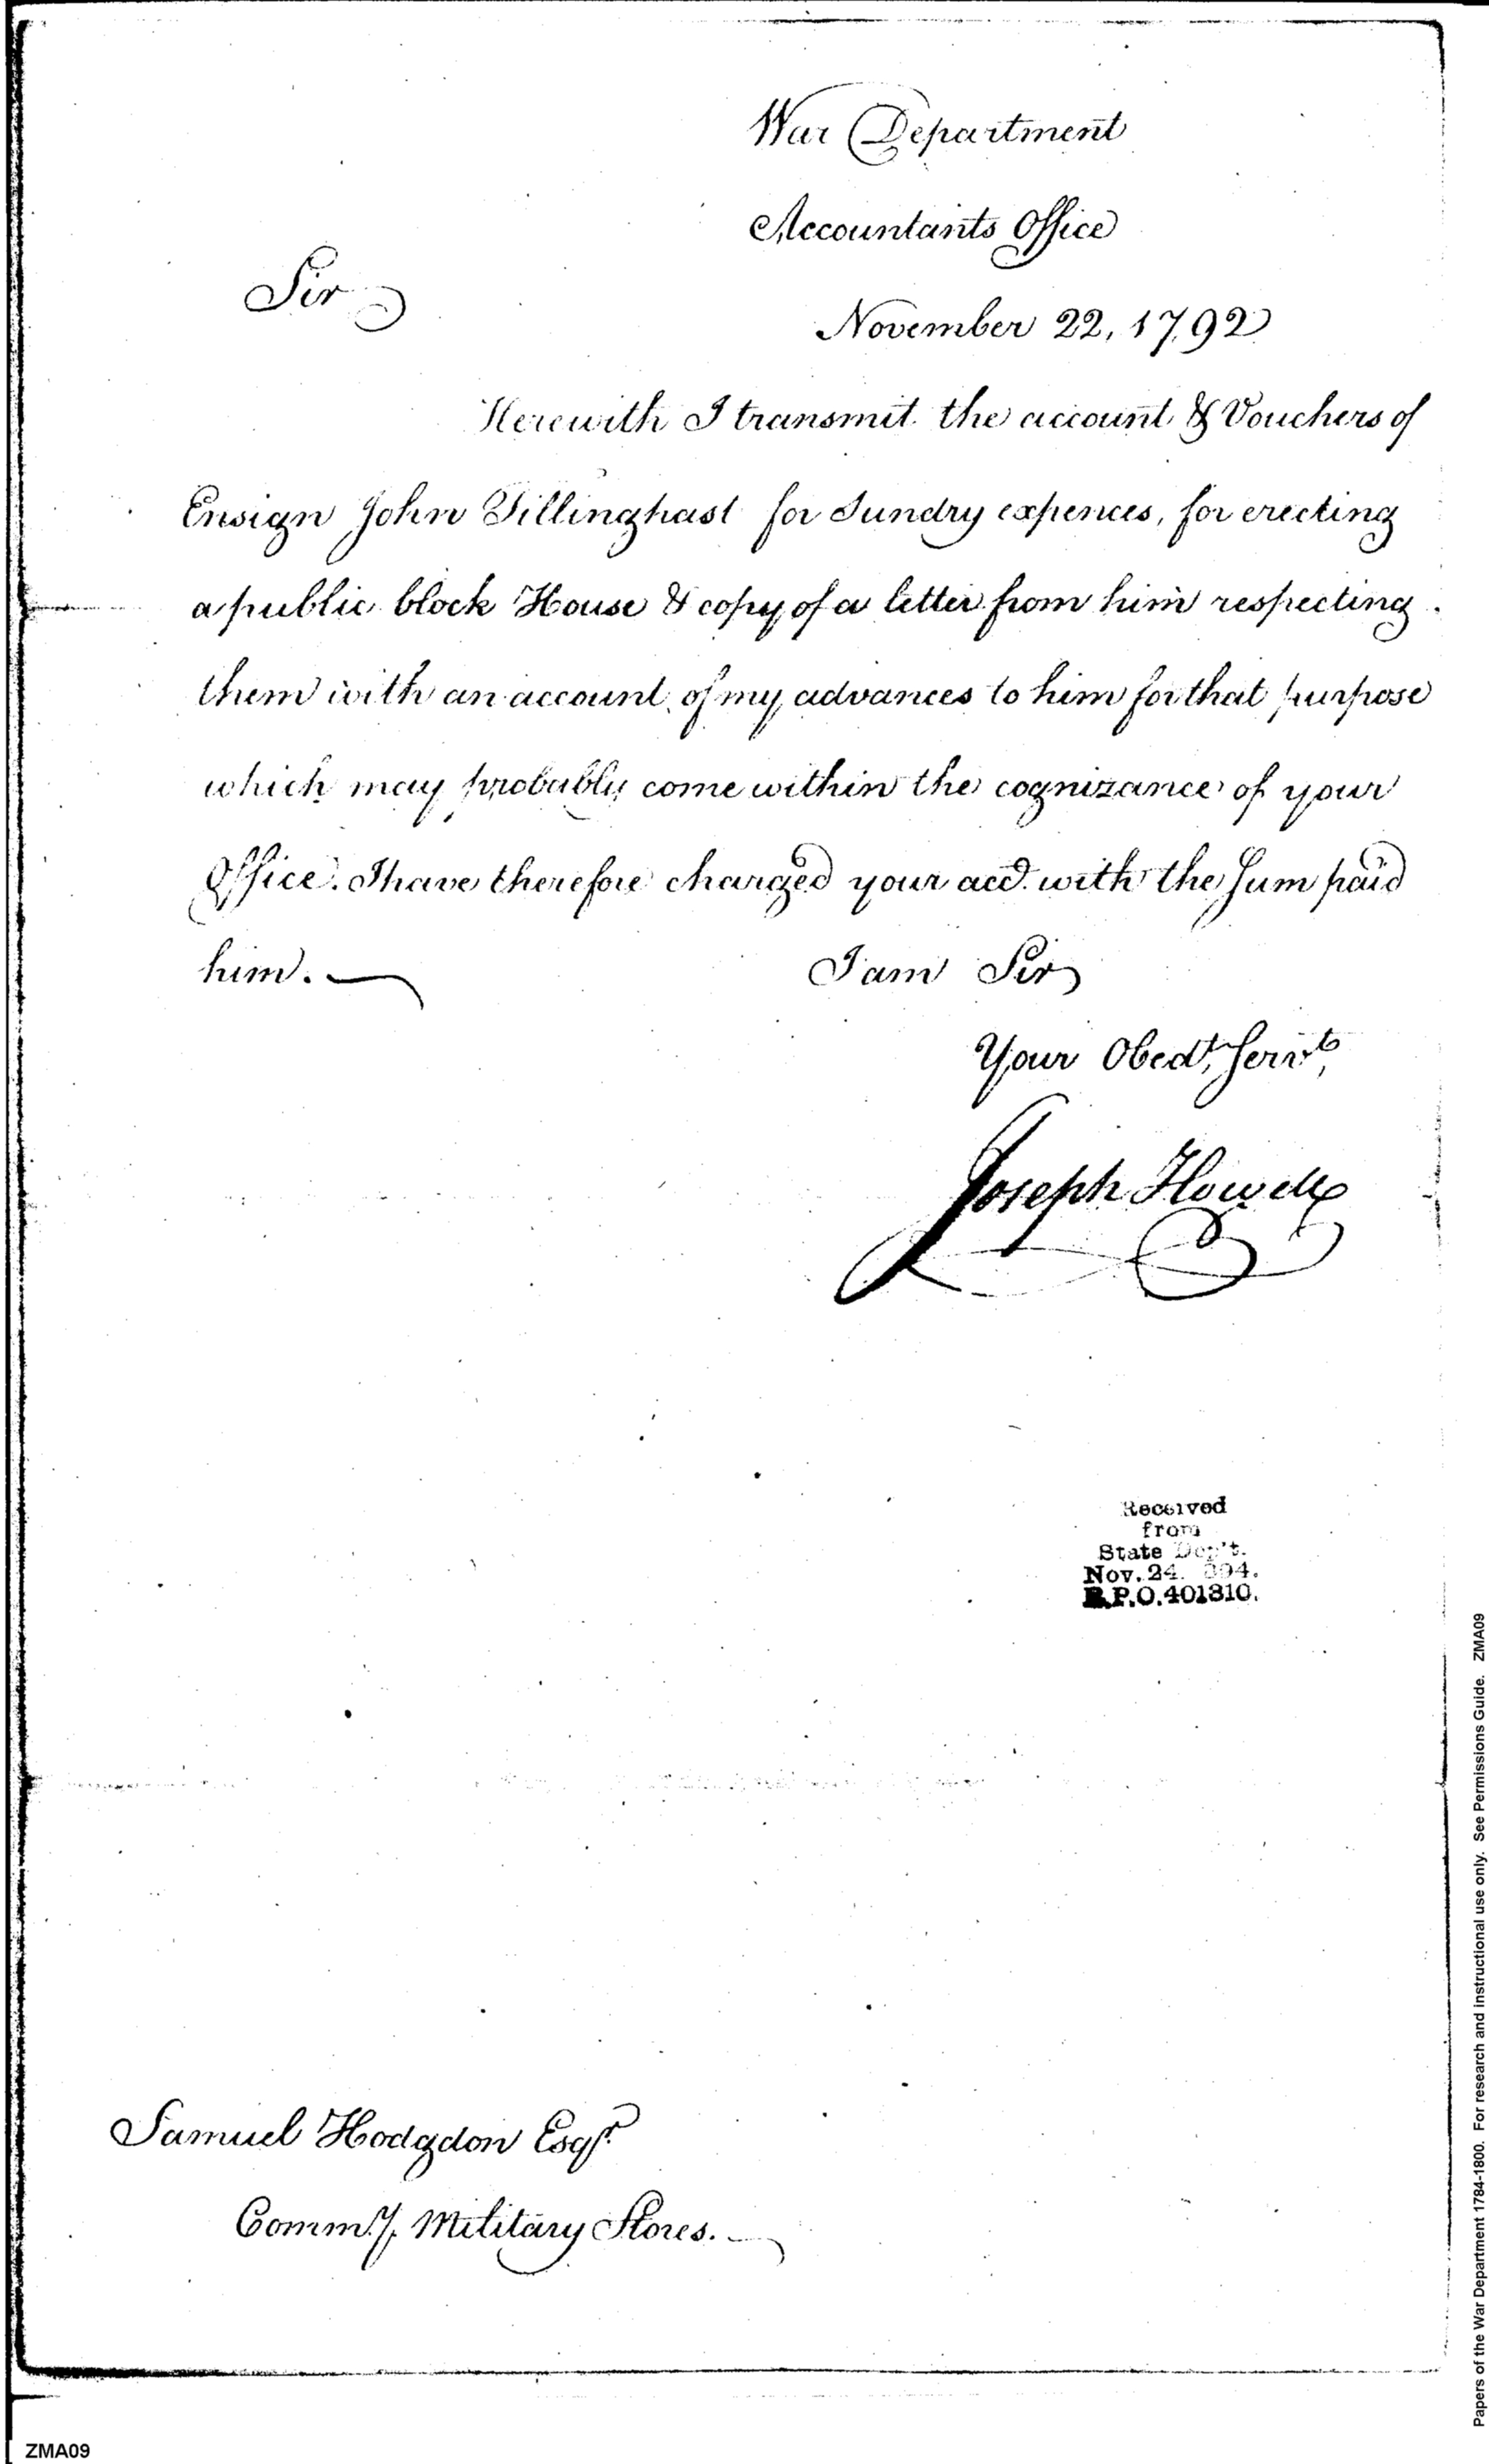 War Department
Accountants Office
Sir
November 22, 1792
Herewith I transmit the account & Vouchers of
Ensign John Tillinghast for Sundry expences, for erecting
a public block House & copy of a letter from him respecting
them with an account of my advances to him for that purpose
which may probably come within the cognizance of your
Office. I have therefore charged your acct. with the Sum paid
him. —
I am Sir
Your Obedt. Servt.
Joseph Howell
Received
from
State Dep't.
Nov. 24. 894.
R.P.O. 401310.
Samuel Hodgdon Esqr.
Commy. Military Stores. —
Papers of the War Department 1784-1800. For research and instructional use only. See Permissions Guide. ZMA09
ZMA09